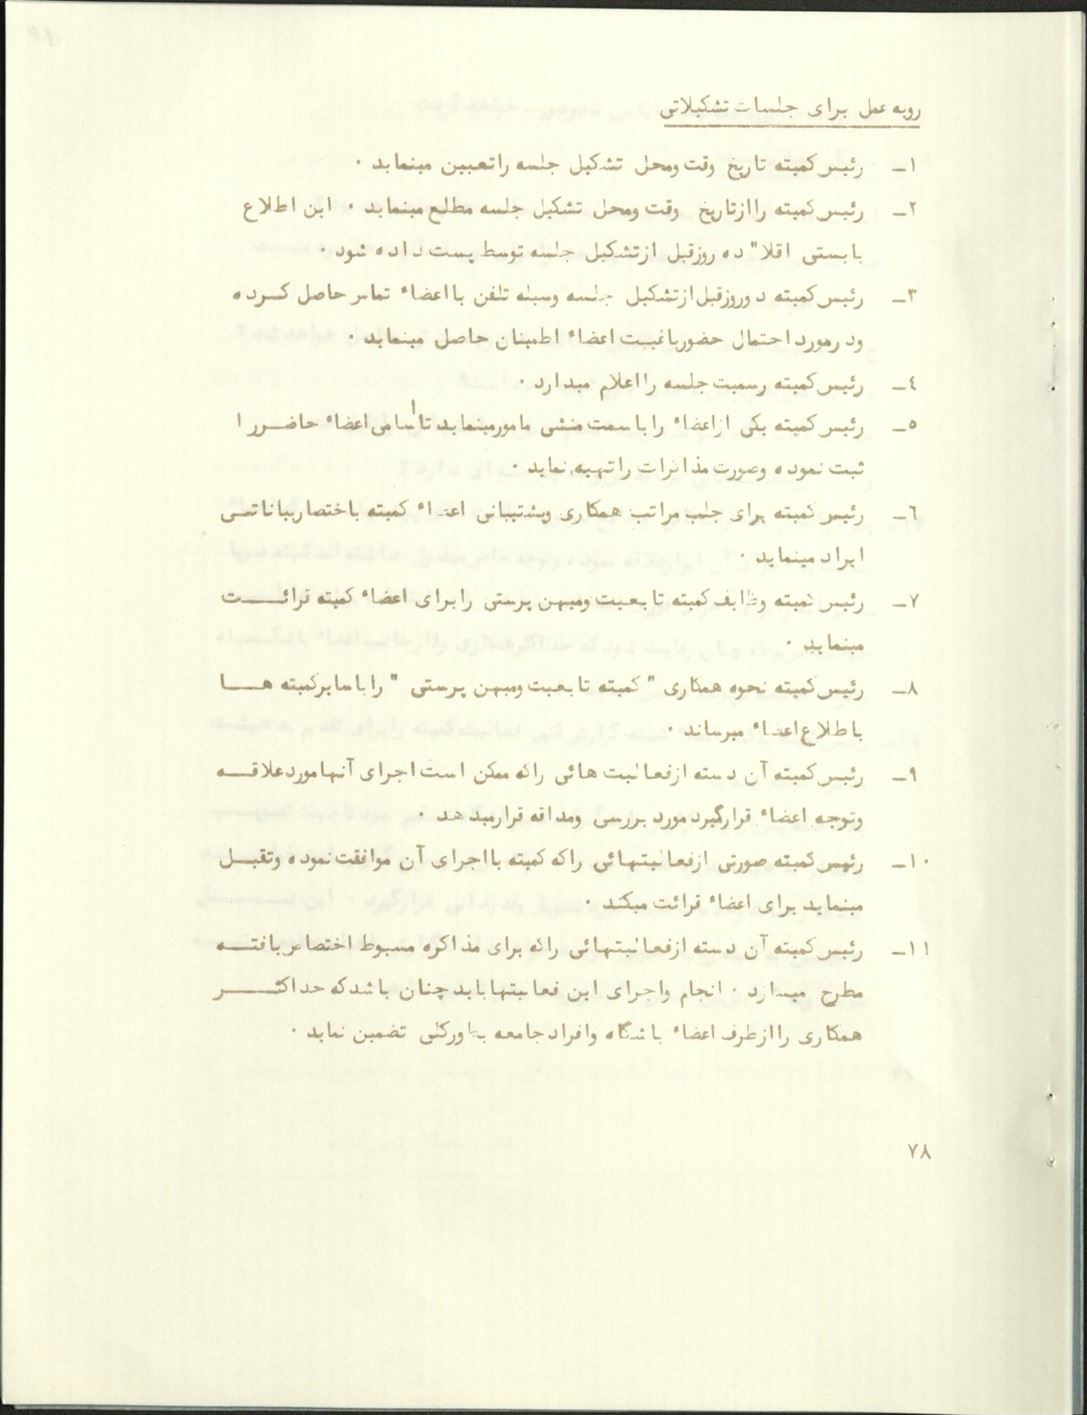 رویه عمل برای جلسات تشکیلاتی
۱ـ رئیس کمیته تاریخ وقت ومحل تشکیل جلسه راتعیین مینماید .
۲ـ رئیس کمیته راازتاریخ وقت ومحل تشکیل جلسه مطلع مینماید . این اطلاع
بایستی اقلا" ده روزقبل ازتشکیل جلسه توسط پست داده شود .
۳ـ رئیس کمیته دوروزقبل ازتشکیل جلسه وسیله تلفن بااعضاء تماس حاصل کرده
ودرمورد احتمال حضوریاغیبت اعضاء اطمینان حاصل مینماید .
٤ـ رئیس کمیته رسمیت جلسه رااعلام میدارد .
۵ـ رئیس کمیته یکی ازاعضاء راباسمت منشی مامورمینماید تااسامی اعضاء حاضررا
ثبت نموده وصورت مذاکرات راتهیه نماید .
٦ـ رئیس کمیته برای جلب مراتب همکاری وپشتیبانی اعضاء کمیته باختصاربیاناتی
ایراد مینماید .
۷ـ رئیس کمیته وظایف کمیته تابعیت ومیهن پرستی رابرای اعضاء کمیته قرائت
مینماید .
۸ـ رئیس کمیته نحوه همکاری " کمیته تابعیت ومیهن پرستی " راباسایرکمیته ها
باطلاع اعضاء میرساند .
۹ـ رئیس کمیته آن دسته ازفعالیت هائی راکه ممکن است اجرای آنهاموردعلاقه
وتوجه اعضاء قرارگیرد مورد بررسی ومداقه قرارمیدهد .
۱۰ـ رئیس کمیته صورتی ازفعالیتهائی راکه کمیته بااجرای آن موافقت نموده وتقبل
مینماید برای اعضاء قرائت میکند .
۱۱ـ رئیس کمیته آن دسته ازفعالیتهائی راکه برای مذاکره مبسوط اختصاص یافته
مطرح میسازد . انجام واجرای این فعالیتهاباید چنان باشدکه حداکثر
همکاری راازطرف اعضاء باشگاه وافراد جامعه بطورکلی تضمین نماید .
۷۸